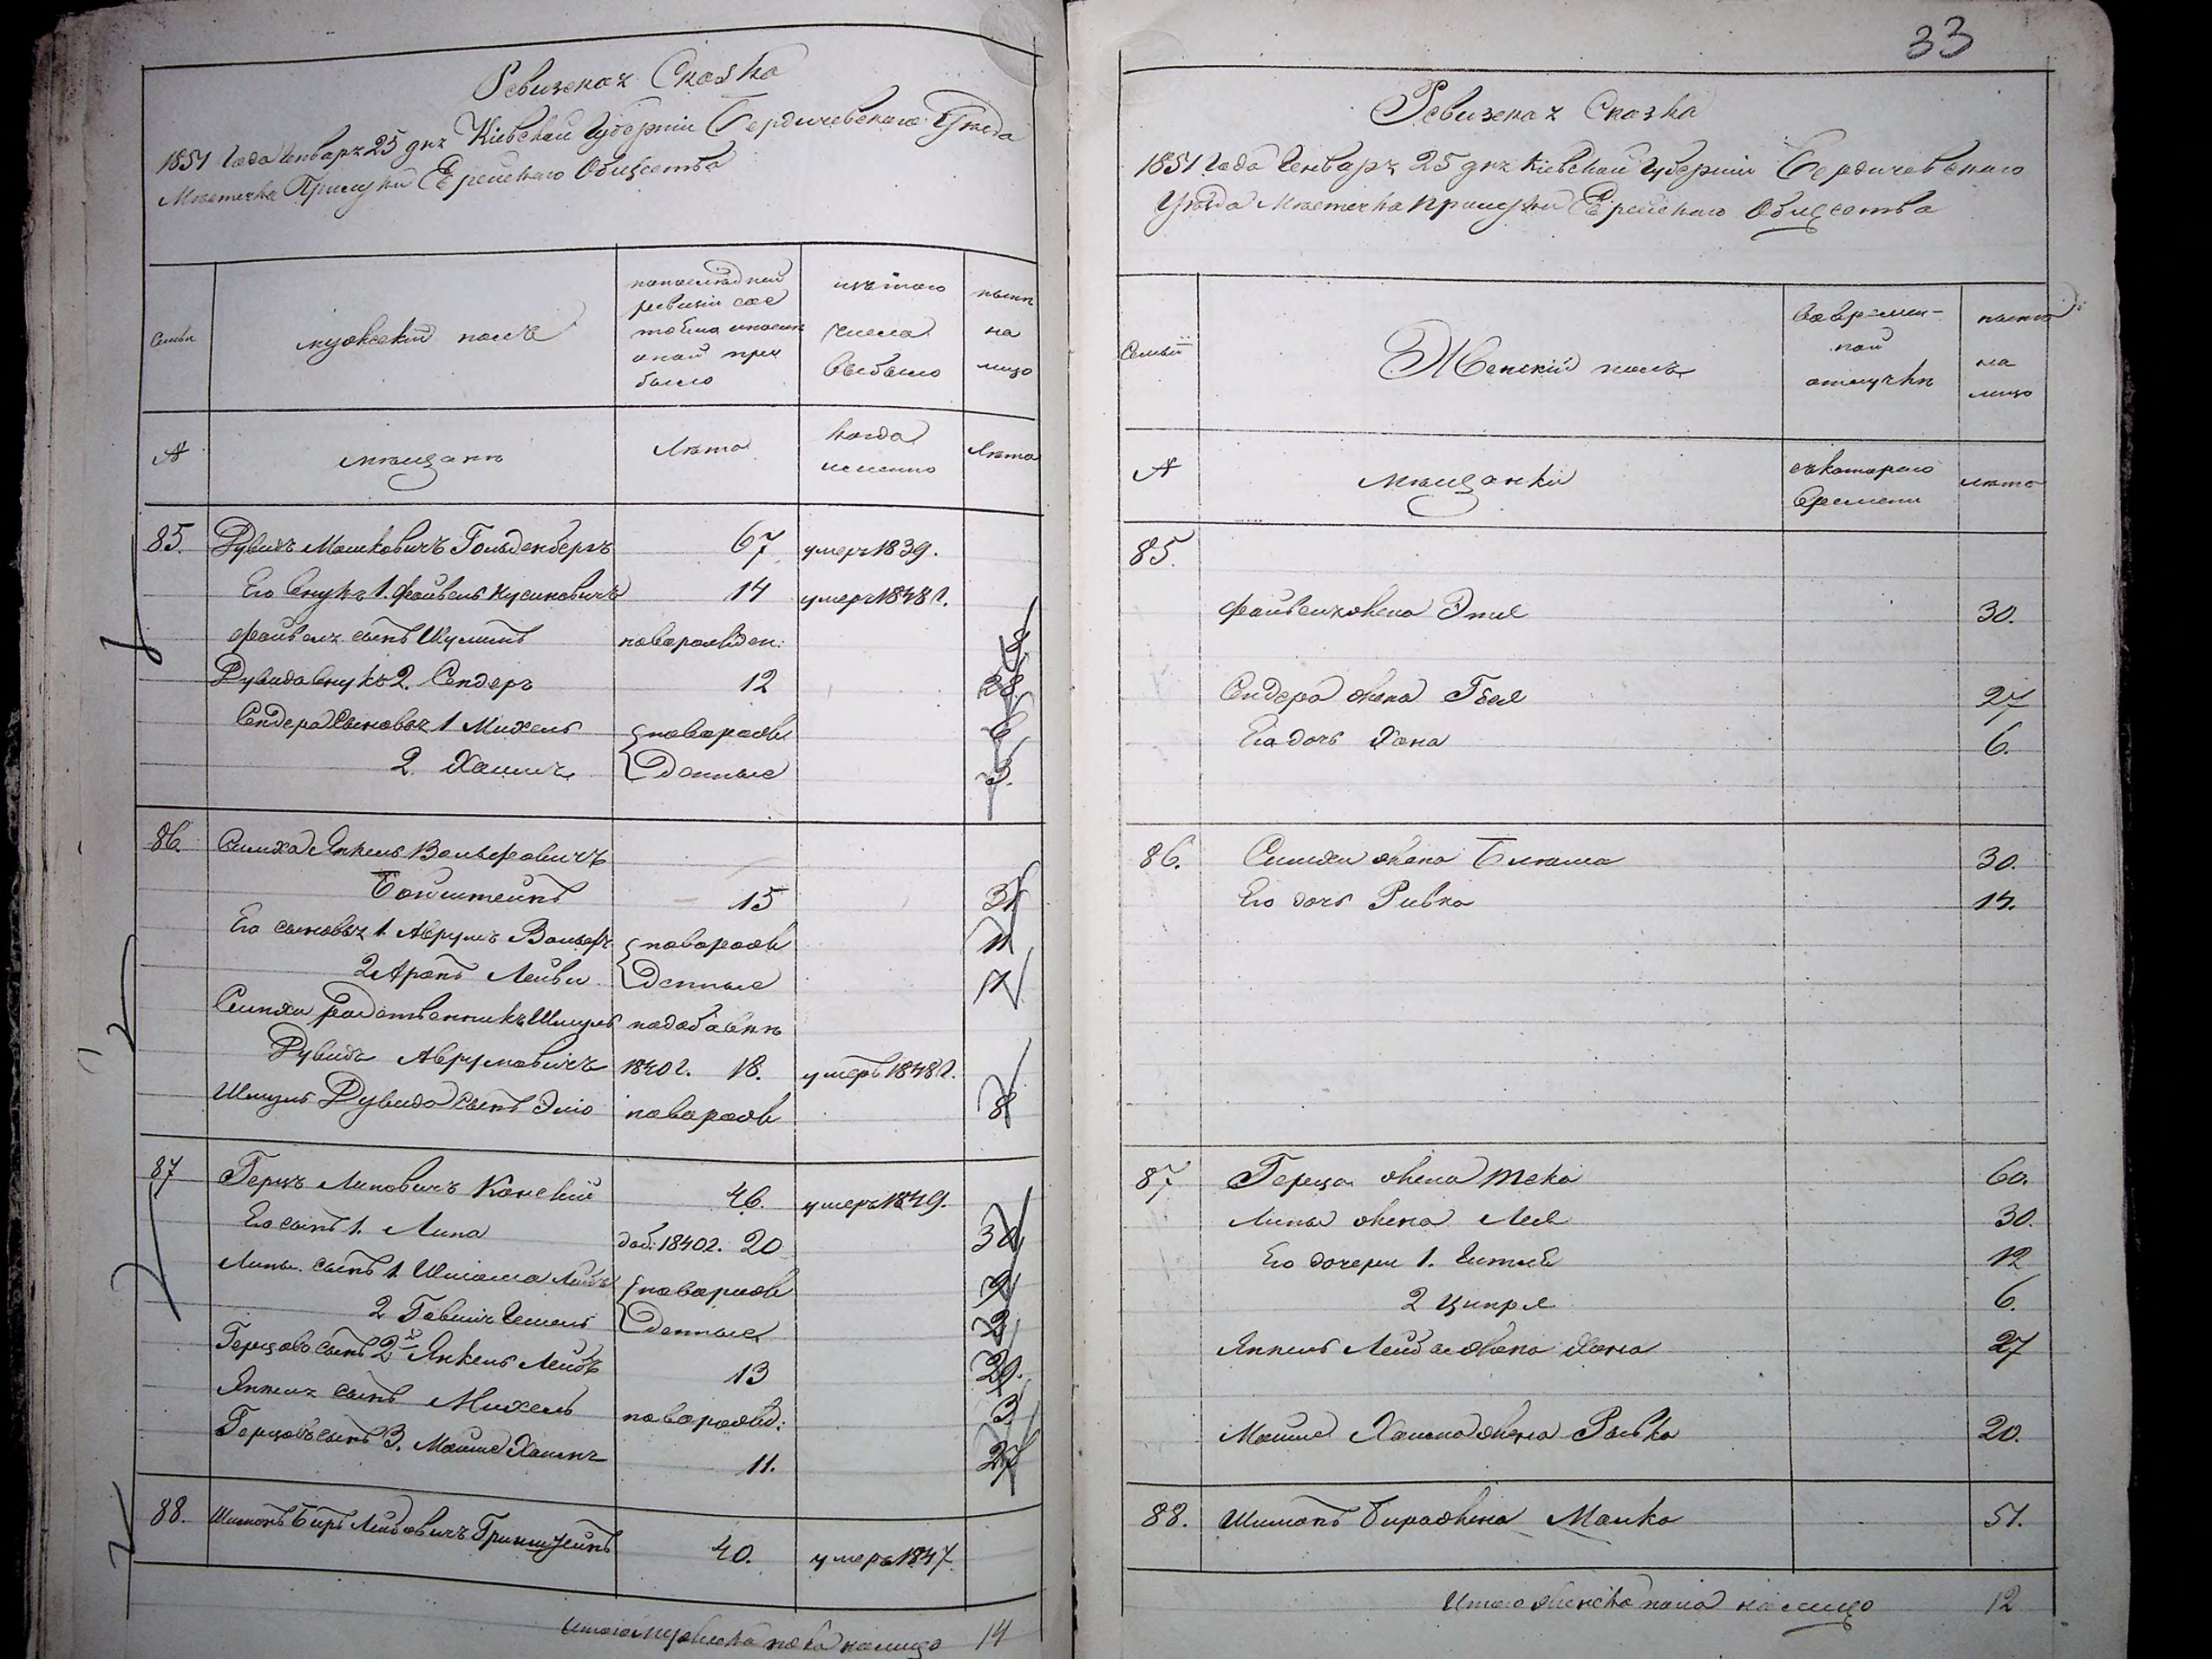 Ревизская Сказка
1851 Года Генваря 25 дня Кіевской Губерніи Бердичевского Уѣзда
Мѣстечка Прилуки Еврейского Общества
Семьи
мужеский полъ
попоследней
ревизіи сос
тояло и после
оной при
было
изъ того
числа
выбыло
ныне
на
лицо
№
мещане
Лета
когда
именно
Лета
85. Рувинъ Мошковичъ Гольденбергъ 67 умеръ 1839.
Его внукъ 1. Файвель Нусиновичъ 14 умеръ 1848 г.
Файвеля сынъ Шулимъ новорожден: 8
Рувина внукъ 2. Сендеръ 12 28
Сендера Сыновья 1 Михель новорож 6
2. Хаимъ денные 3.
86. Симха Янкель Вольфовичъ
Бойштейнъ 15 31
Его сыновья 1. Аврумъ Вольфъ новорож 11
2 Аронъ Лейви денные 7
Симхи родственникъ Шмуль подобавкѣ
Рувинъ Аврумовичъ 1840 г. 18. умеръ 1848 г.
Шмуль Рувина сынъ Эліо новорож 8
87 Герцъ Липовичъ Конскій 46. умеръ 1849.
Его сынъ 1. Липа доб: 1840 г. 20
Липы сынъ 1. Шлиома Лейбъ новорож 9
2 денные 2
Герцовъ сынъ 2й Янкель Лейбъ 13 29.
Янкеля сынъ Михель новорожд: 3
Герцовъ сынъ 3. Мошко Хаимъ 11. 27
88. Шимонъ Беръ Лейбовичъ Гринштейнъ 40. умеръ 1847
Итого мужеска пола налицо 14
33
Ревизская Сказка
1851 Года Генваря 25 дня Кіевской Губерніи Бердичевского
Уѣзда Мѣстечка Прилуки Еврейского Общества
Семьи
Женскій полъ
Во времен-
ной
отлучкѣ
ныне
на
лицо
№
мещанки
съ котораго
Времени
лета
85.
Файвеля жена Этля 30.
Сендера жена Бейля 27
Его дочь Хана 6.
86. Симхи жена Блюма 30.
Его дочь Ривка 14.
87 Герца жена 60.
Липы жена Лея 30.
Его дочери 1. Гитля 12
2 Ципря 6.
Янкель Лейба жена Хана 27
Мошко Хаима жена Рывка 20.
88. Шимонъ Бера жена Малка 51.
Итого женска пола налицо 12